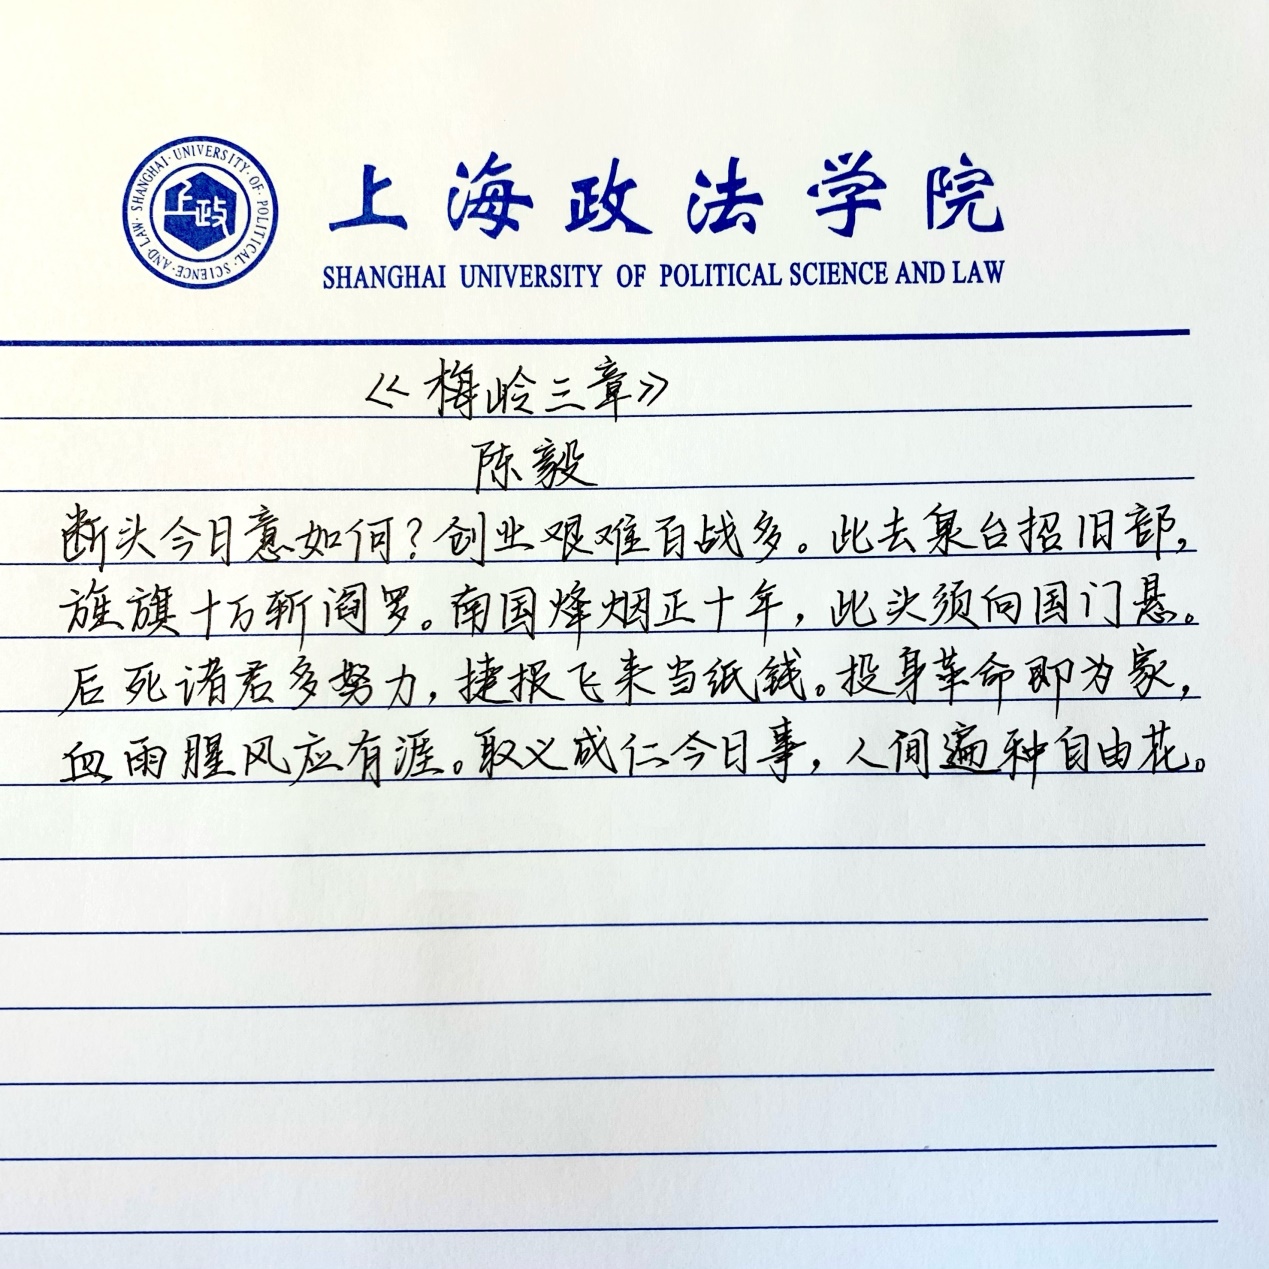 SHANGHAI·UNIVERSITY·OF·POLITICAL·SCIENCE·AND·LAW·
上政
上海政法学院
SHANGHAI UNIVERSITY OF POLITICAL SCIENCE AND LAW
《梅岭三章》
陈毅
断头今日意如何？创业艰难百战多。此去泉台招旧部，
旌旗十万斩阎罗。南国烽烟正十年，此头须向国门悬。
后死诸君多努力，捷报飞来当纸钱。投身革命即为家，
血雨腥风应有涯。取义成仁今日事，人间遍种自由花。